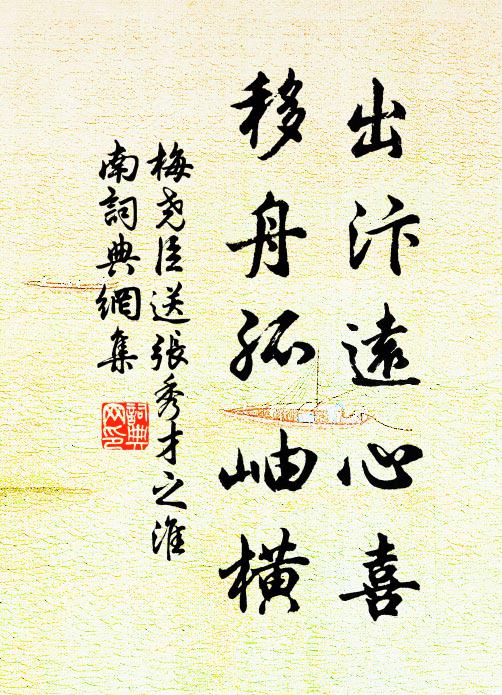 出汴遠心喜
移舟孤岫橫
梅尧臣送張秀才之淮
南詞典網集
詞典
网印